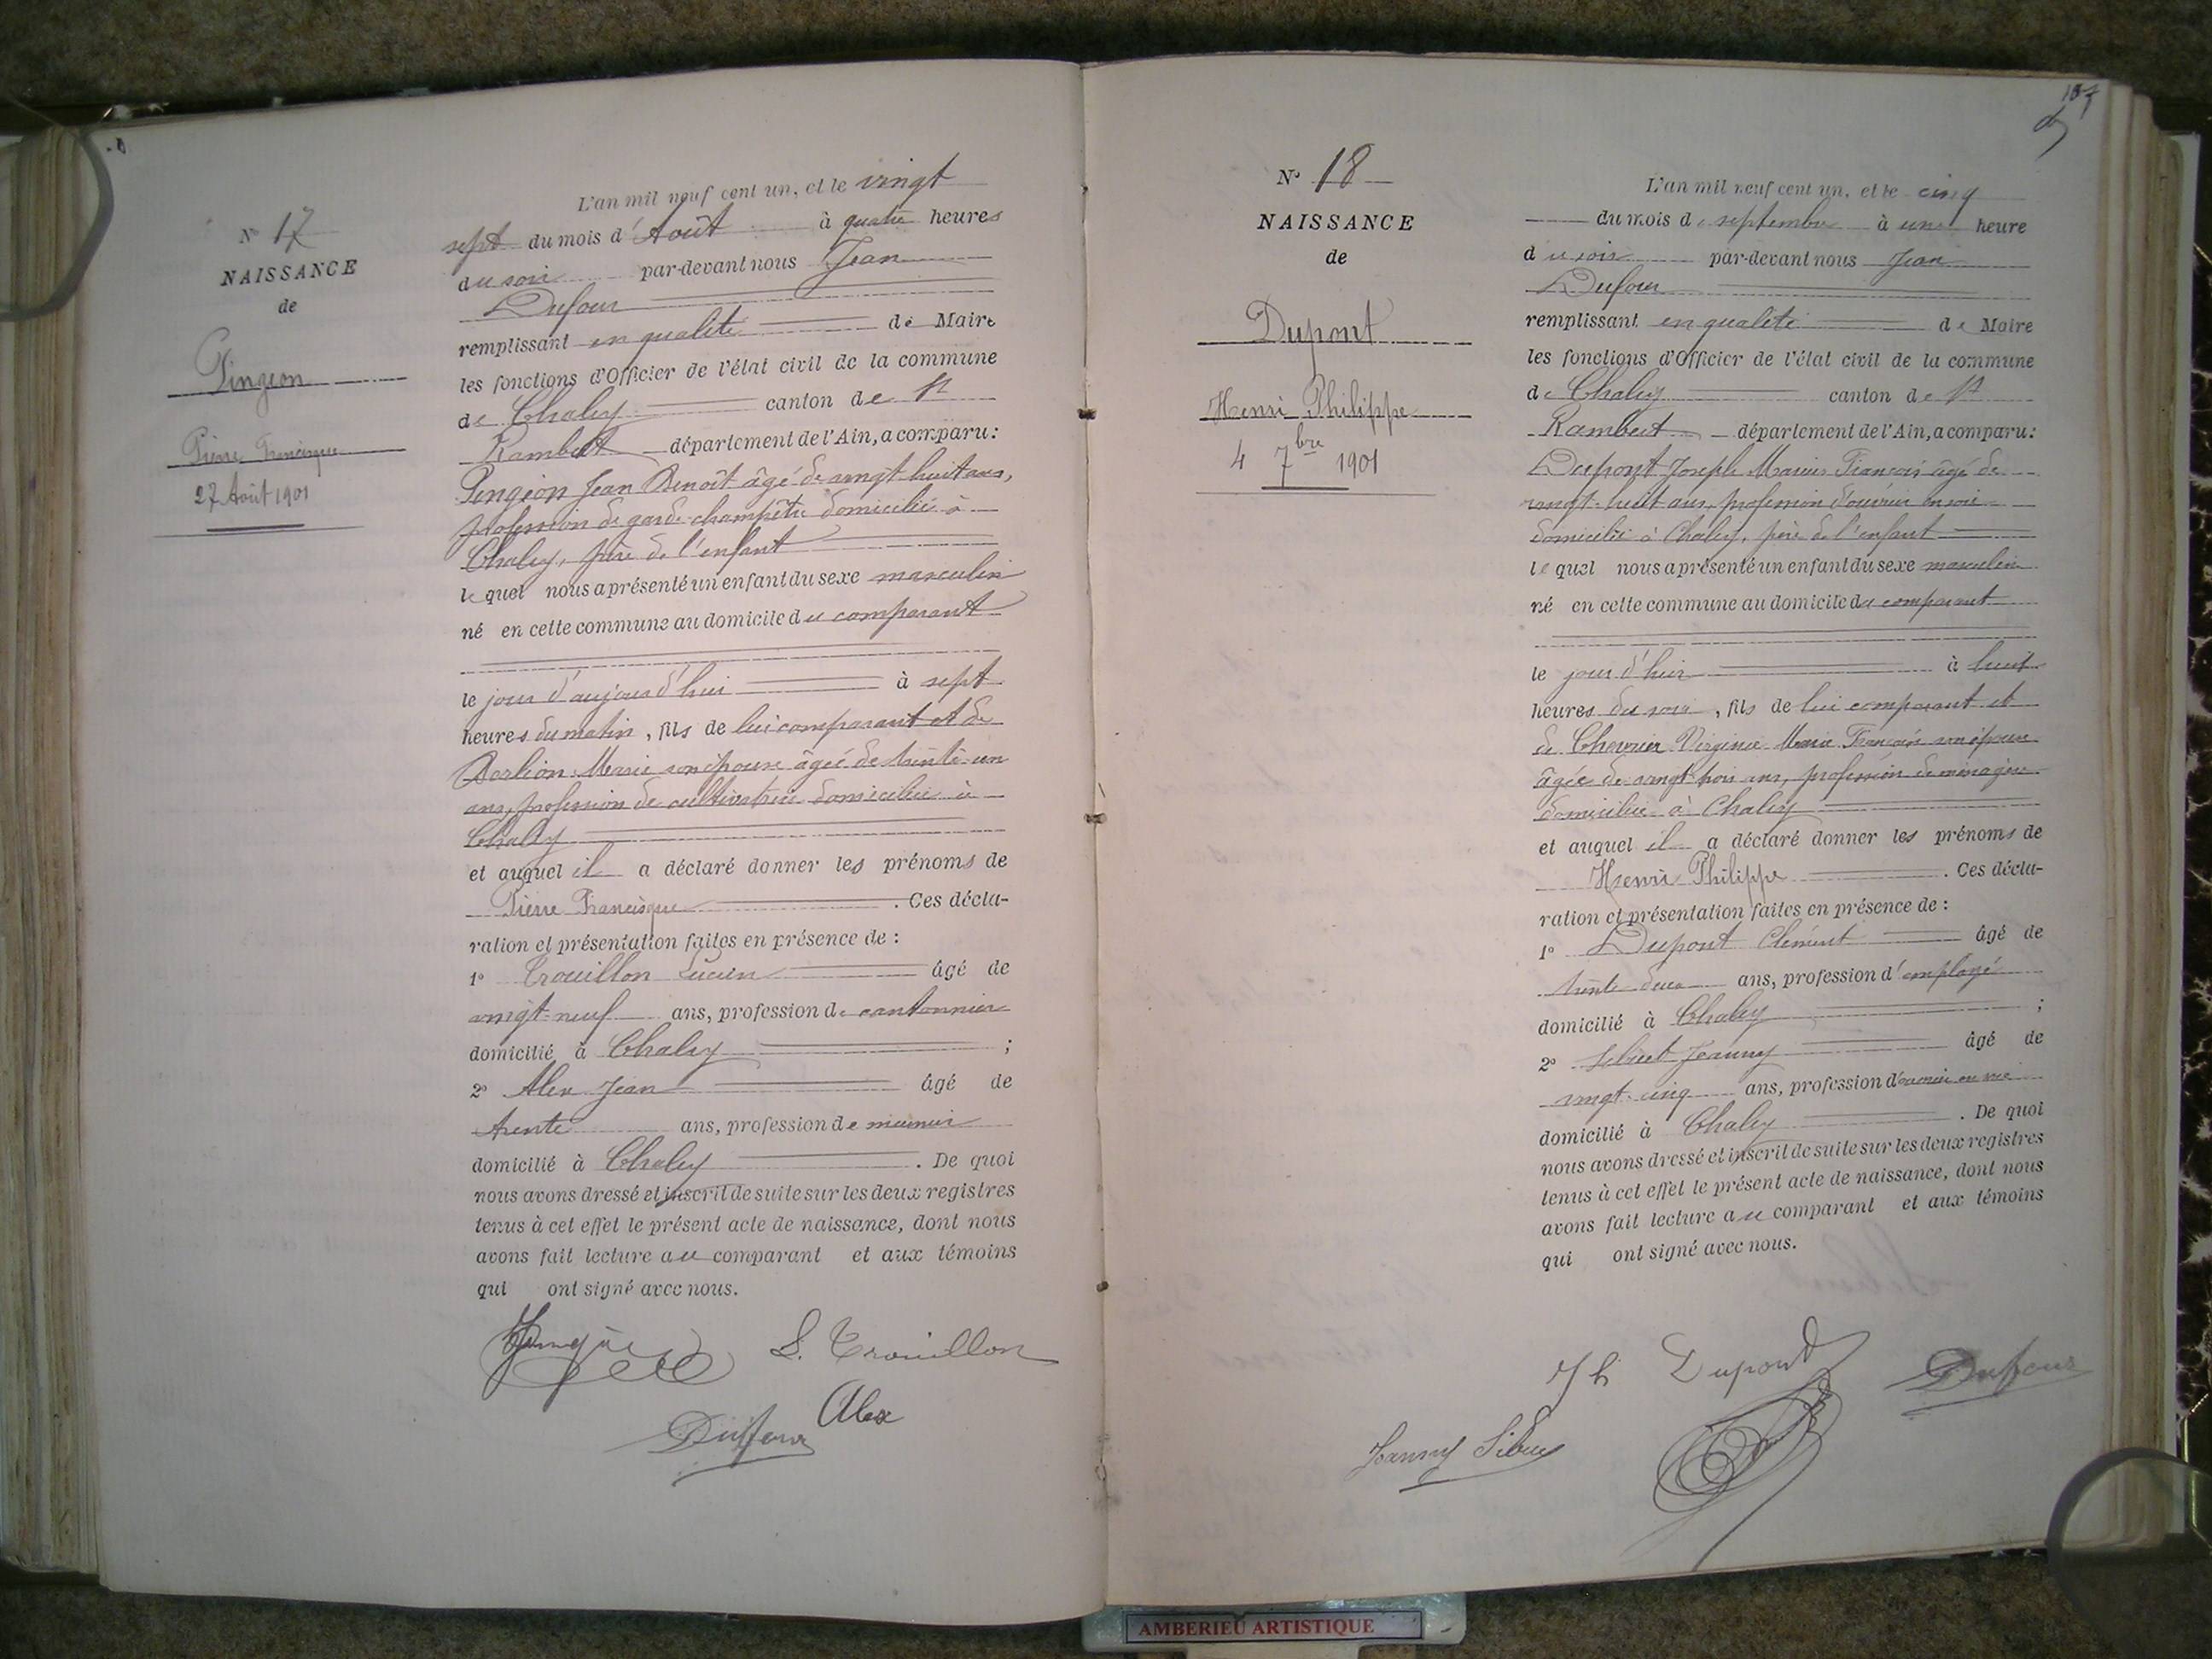 N° 17
NAISSANCE
de
Pingeon
Pierre Francisque
27 Août 1901
L'an mil neuf cent un, et le vingt
sept du mois d'Août à quatre heures
du soir par-devant nous Jean
Dufour
remplissant en qualité de Maire
les fonctions d'Officier de l'état civil de la commune
de Chaley canton de St
Rambert département de l'Ain, a comparu:
Pingeon Jean Benoît âgé de vingt huit ans,
profession de garde-champêtre domicilié à
Chaley, père de l'enfant
lequel nous a présenté un enfant du sexe masculin
né en cette commune au domicile du comparant
le jour d'aujourd'hui à sept
heures du matin, fils de lui comparant et de
Marie son épouse âgée de trente-un
ans, profession de cultivatrice domiciliée à
Chaley
et auquel il a déclaré donner les prénoms de
Pierre Francisque. Ces décla-
ration et présentation faites en présence de:
1° Trouillon Lucien âgé de
vingt-neuf ans, profession de cantonnier
domicilié à Chaley;
2° Alex Jean âgé de
trente ans, profession de meunier
domicilié à Chaley. De quoi
nous avons dressé et inscrit de suite sur les deux registres
tenus à cet effet le présent acte de naissance, dont nous
avons fait lecture au comparant et aux témoins
qui ont signé avec nous.
L. Trouillon
Alex
Duffour
107
N° 18
NAISSANCE
de
Dupont
Henri Philippe
4 7bre 1901
L'an mil neuf cent un, et le cinq
du mois de septembre à une heure
du soir par-devant nous Jean
Dufour
remplissant en qualité de Maire
les fonctions d'Officier de l'état civil de la commune
de Chaley canton de St
Rambert département de l'Ain, a comparu:
Dupont Joseph Marius François âgé de
vingt-huit ans, profession d'ouvrier en soie
domicilié à Chaley, père de l'enfant
lequel nous a présenté un enfant du sexe masculin
né en cette commune au domicile du comparant
le jour d'hier à huit
heures du soir, fils de lui comparant et
de Chevrier Virginie Marie Françoise son épouse
âgée de vingt trois ans, profession de ménagère
domiciliée à Chaley
et auquel il a déclaré donner les prénoms de
Henri Philippe. Ces décla-
ration et présentation faites en présence de:
1° Dupont Clément âgé de
trente deux ans, profession d'employé
domicilié à Chaley;
2° Jeanny âgé de
vingt-cinq ans, profession d'ouvrier en soie
domicilié à Chaley. De quoi
nous avons dressé et inscrit de suite sur les deux registres
tenus à cet effet le présent acte de naissance, dont nous
avons fait lecture au comparant et aux témoins
qui ont signé avec nous.
Dupont
Duffour
AMBERIEU ARTISTIQUE